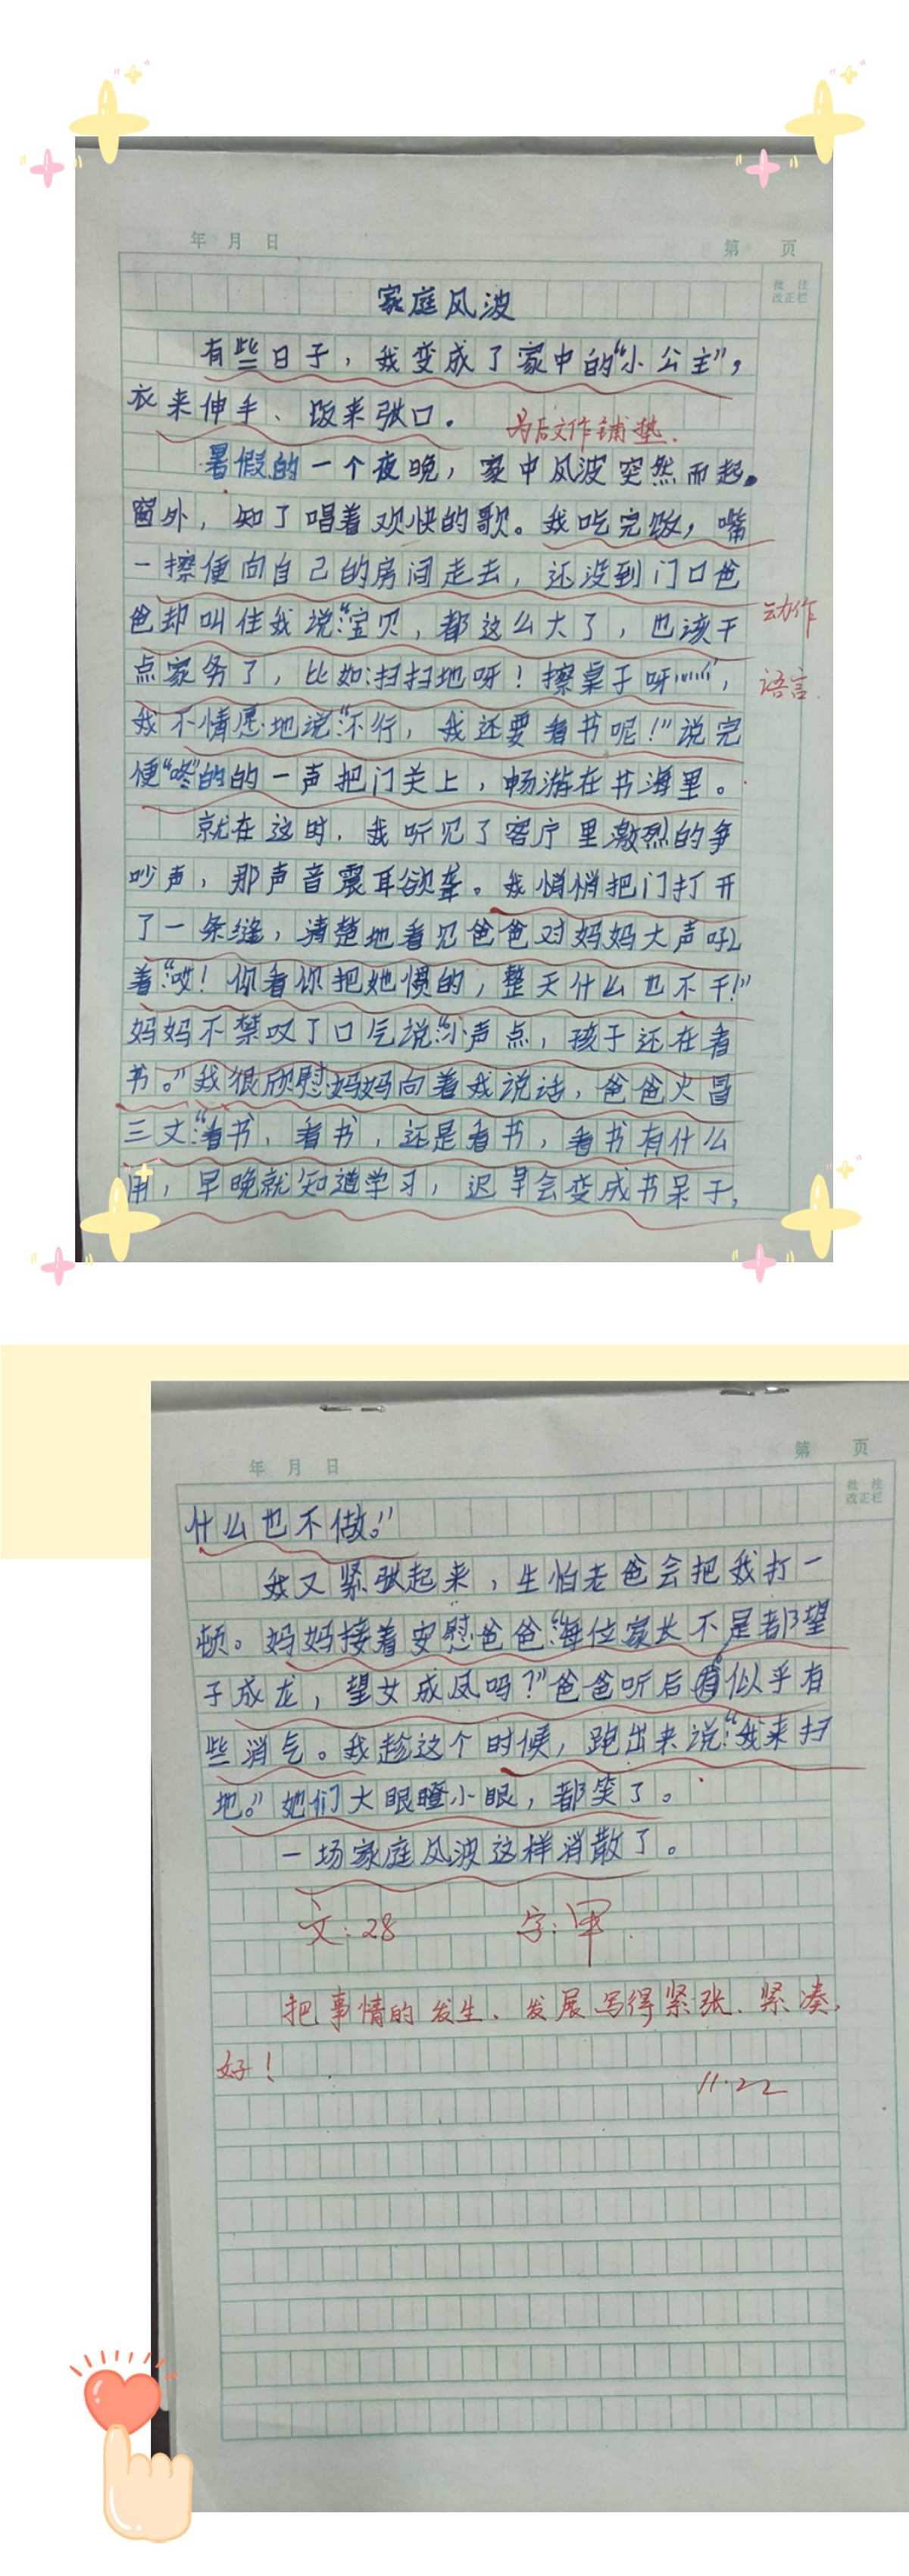 年 月 日
第 页
批 注
改正栏
家庭风波
有些日子，我变成了家中的“小公主”，
衣来伸手、饭来张口。
为后文作铺垫.
暑假的一个夜晚，家中风波突然而起。
窗外，知了唱着欢快的歌。我吃完饭，嘴
一擦便向自己的房间走去，还没到门口爸
爸却叫住我说：“宝贝，都这么大了，也该干
动作
点家务了，比如：扫扫地呀！擦桌子呀……，
语言.
我不情愿地说：“不行，我还要看书呢！”说完
便“咚”的的一声把门关上，畅游在书海里。
就在这时，我听见了客厅里激烈的争
吵声，那声音震耳欲聋。我悄悄把门打开
了一条缝，清楚地看见爸爸对妈妈大声吼
着：“哎！你看你把她惯的，整天什么也不干！”
妈妈不禁叹了口气说：“小声点，孩子还在看
书。”我很欣慰妈妈向着我说话，爸爸火冒
三丈：“看书，看书，还是看书，看书有什么
用，早晚就知道学习，迟早会变成书呆子，
年 月 日
第 页
批 注
改正栏
什么也不做。”
我又紧张起来，生怕老爸会把我打一
顿。妈妈接着安慰爸爸：“每位家长不是都望
子成龙，望女成凤吗？”爸爸听后似乎有
些消气。我趁这个时候，跑出来说：“我来扫
地。”她们大眼瞪小眼，都笑了。
一场家庭风波这样消散了。
文：28 字：甲.
把事情的发生、发展写得紧张、紧凑，
好！
11.22